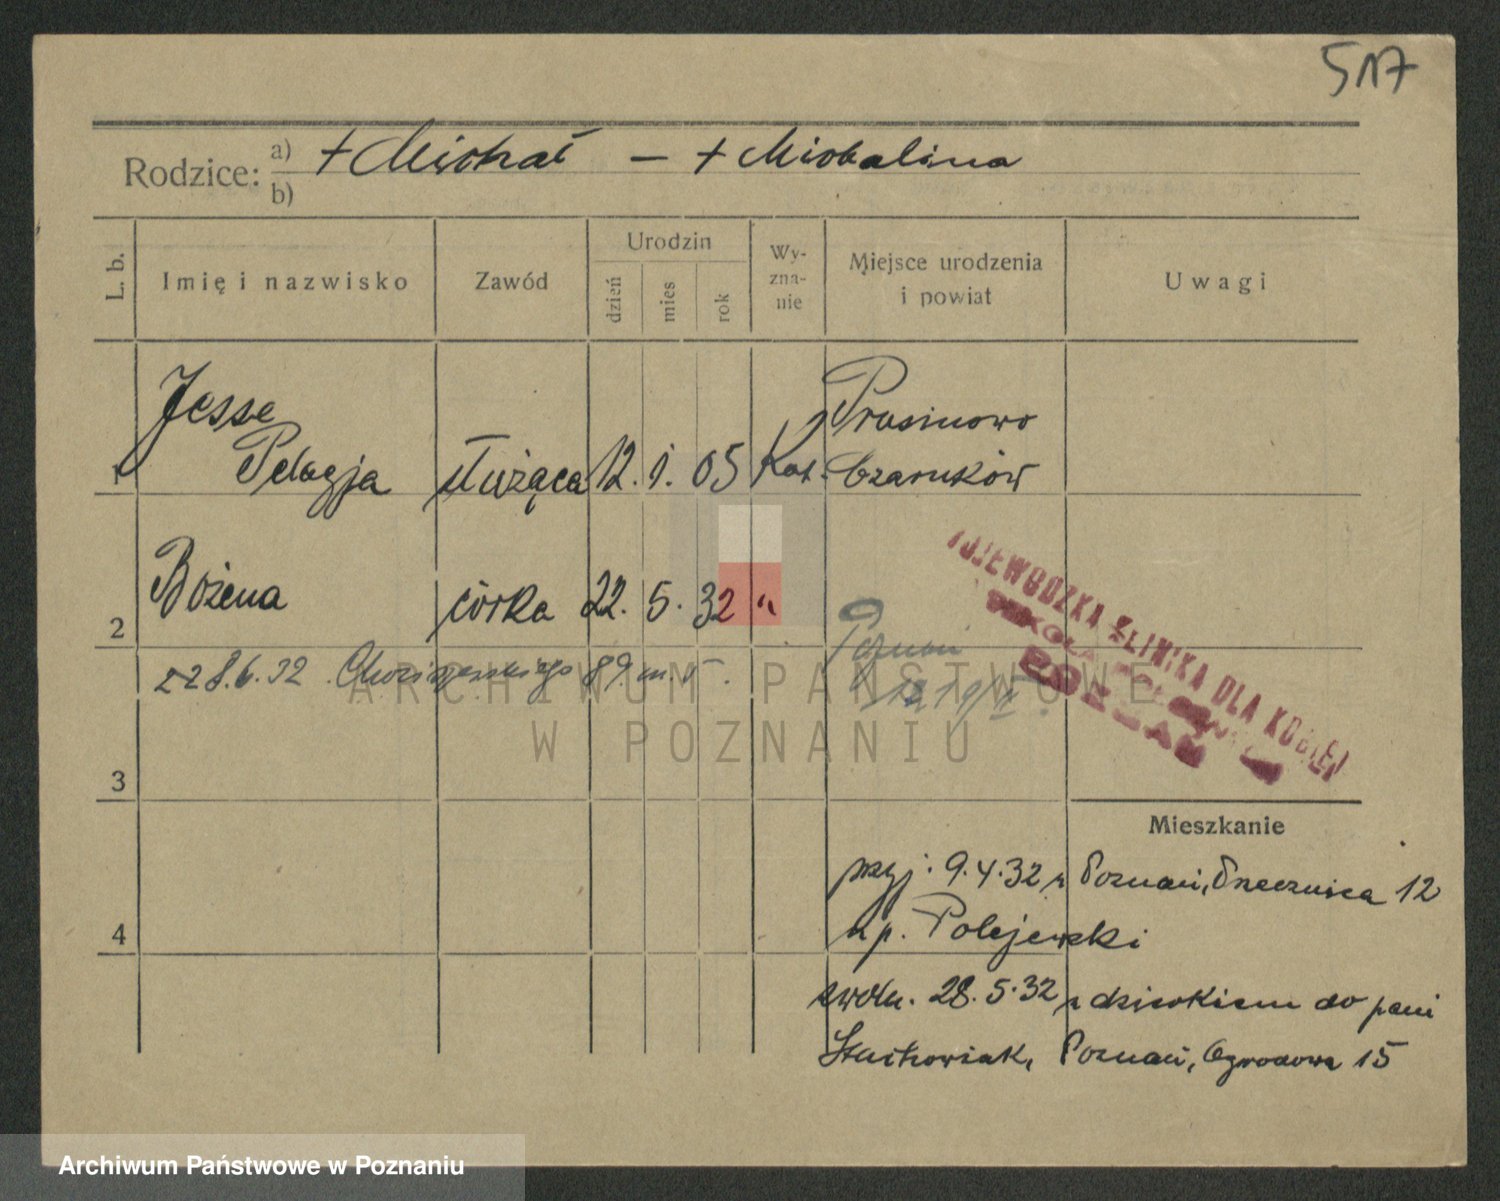 517
Rodzice: a) + Michał — + Michalina
b)
L. b. Imię i nazwisko Zawód Urodzin dzień mies rok Wy-zna-nie Miejsce urodzenia i powiat Uwagi
Jesse Prusinowo
1 Pelagja służąca 12. 1. 05 Kat. Czarnków
2 Bożena córka 22. 5. 32 " Poznań
WOJEWÓDZKA KLINIKA DLA KOBIET
z 28.6.32
ARCHIWUM PAŃSTWOWE
W POZNANIU
3
Mieszkanie
przyj. 9.4.32 z Poznań, 12
4 np. Polejewski
zwoln. 28.5.32 z dzieckiem do pani
Stachowiak, Poznań, Ogrodowa 15
Archiwum Państwowe w Poznaniu